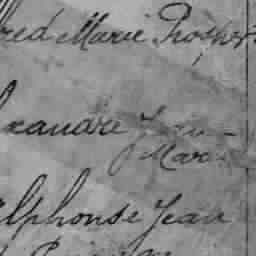 red Marie Prosper
exandre Jean-
Mar
Alphonse Jean